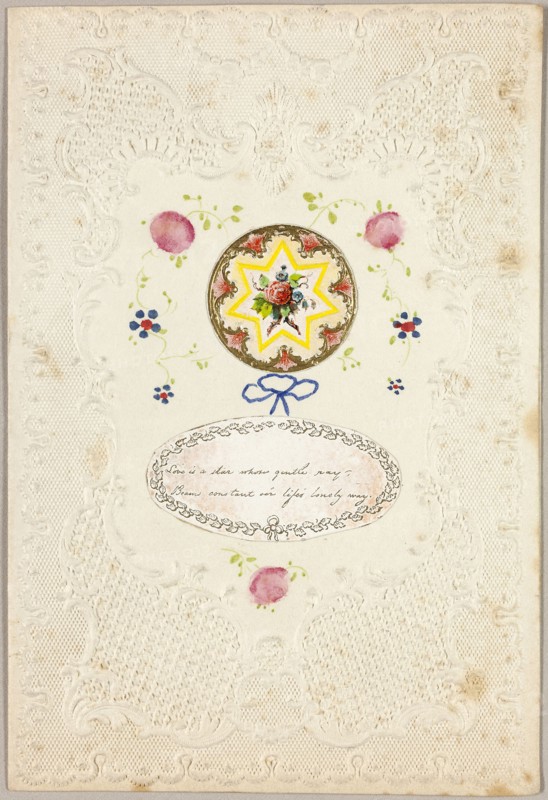 Love is a star whose gentle ray -
Beams constant o'er life's lonely way.